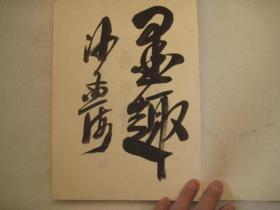 墨趣
沙孟海